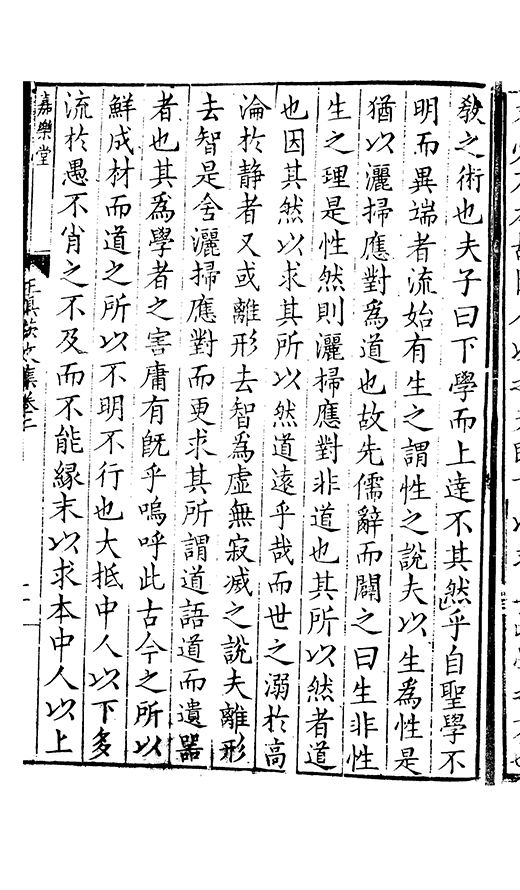 敎之術也夫子曰下學而上達不其然乎自聖學不
明而異端者流始有生之謂性之說夫以生爲性是
猶以灑掃應對爲道也故先儒辭而闢之曰生非性
生之理是性然則灑掃應對非道也其所以然者道
也因其然以求其所以然道遠乎哉而世之溺於高
淪於静者又或離形去智爲虛無寂滅之說夫離形
去智是舍灑掃應對而更求其所謂道語道而遺器
者也其爲學者之害庸有旣乎嗚呼此古今之所以
鮮成材而道之所以不明不行也大抵中人以下多
流於愚不肖之不及而不能緣末以求本中人以上
嘉樂堂
文集卷二